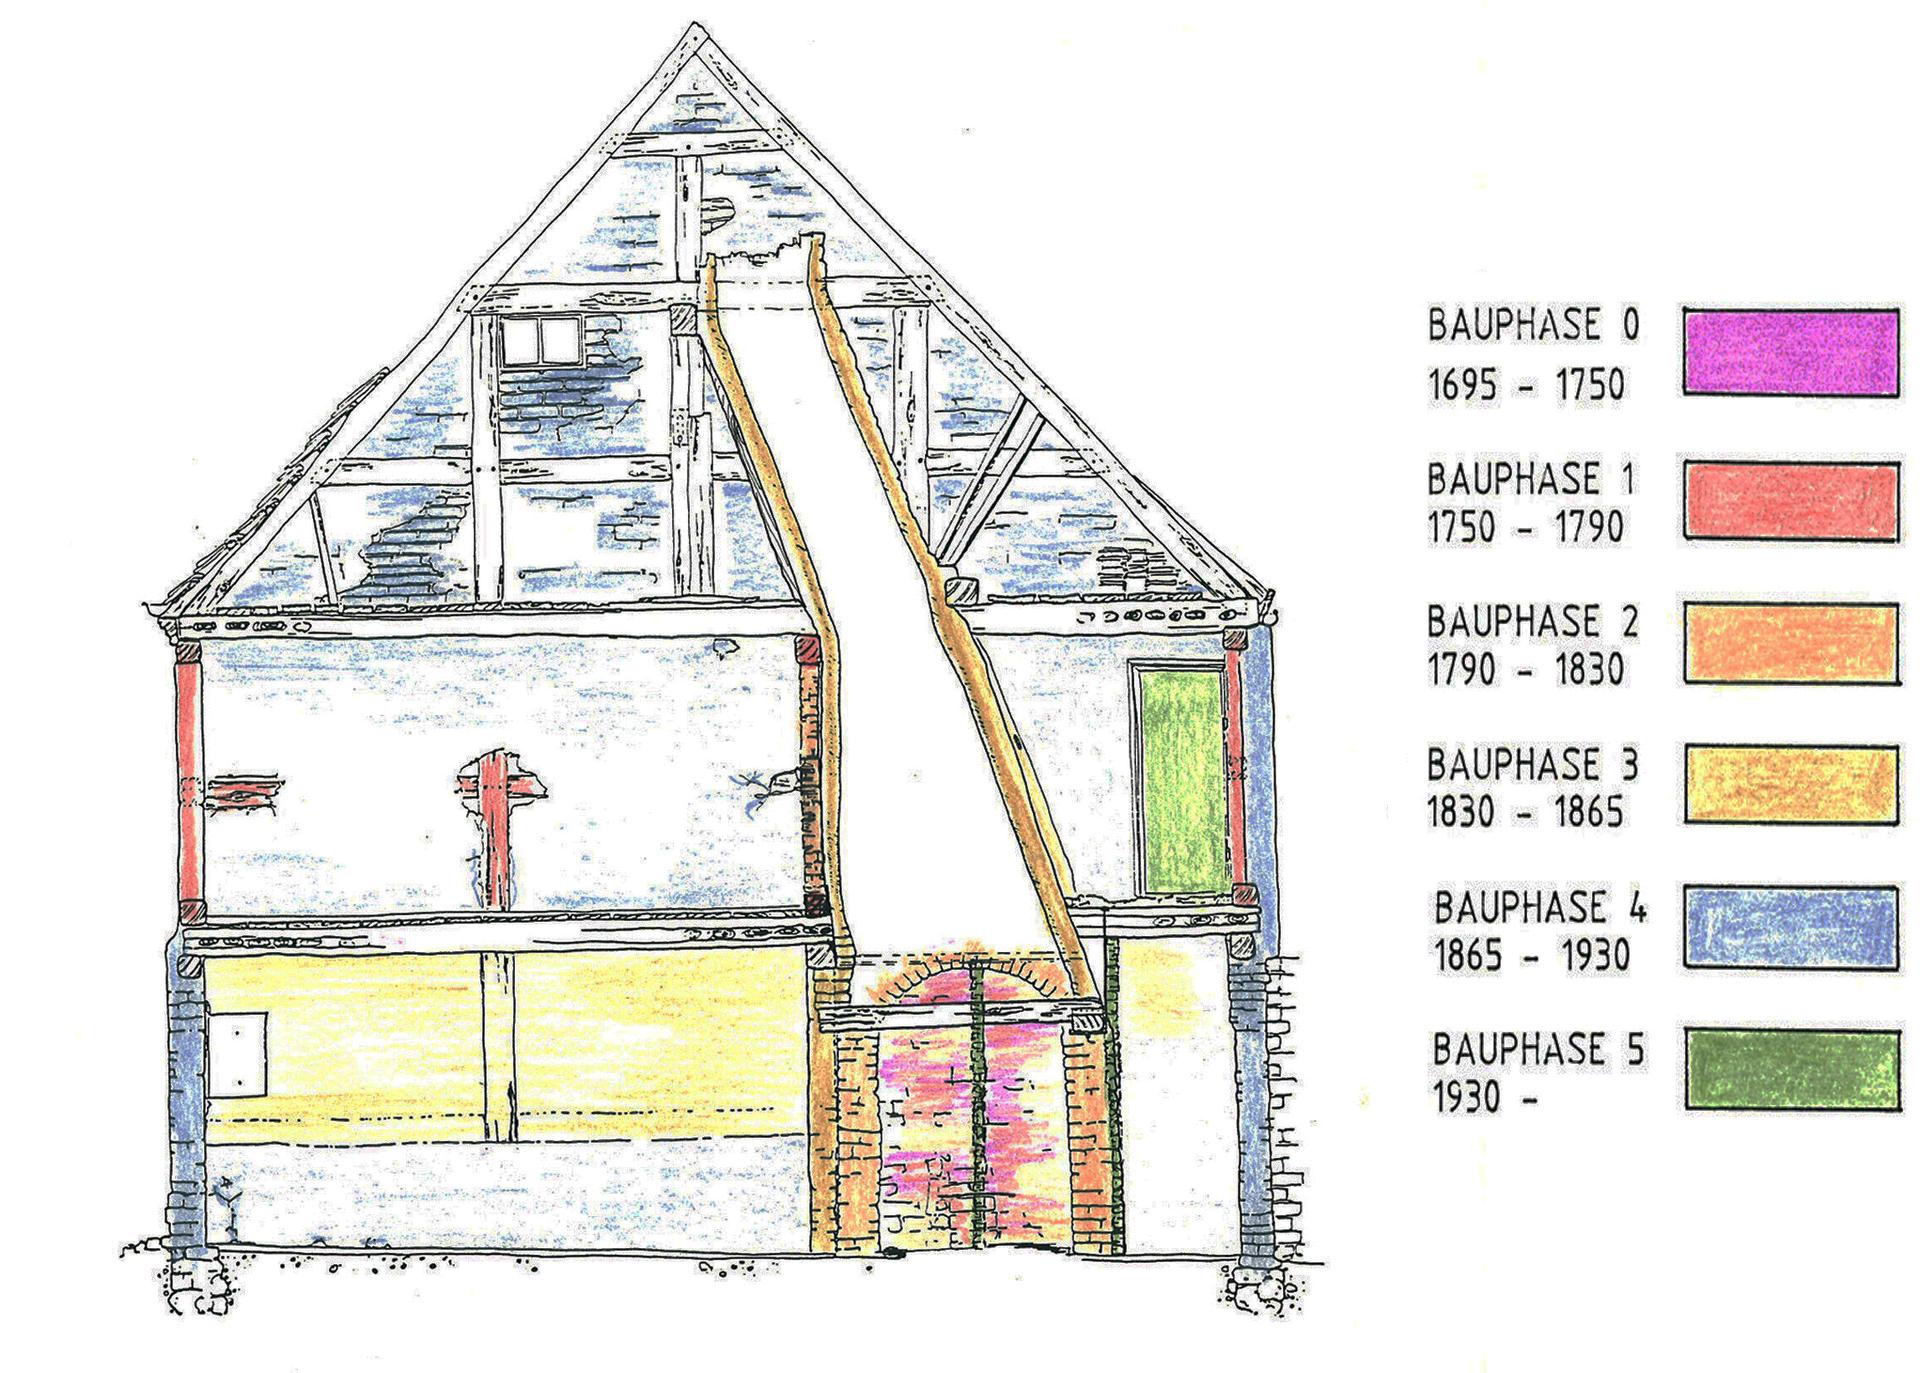 BAUPHASE 0
1695 - 1750
BAUPHASE 1
1750 - 1790
BAUPHASE 2
1790 - 1830
BAUPHASE 3
1830 - 1865
BAUPHASE 4
1865 - 1930
BAUPHASE 5
1930 -